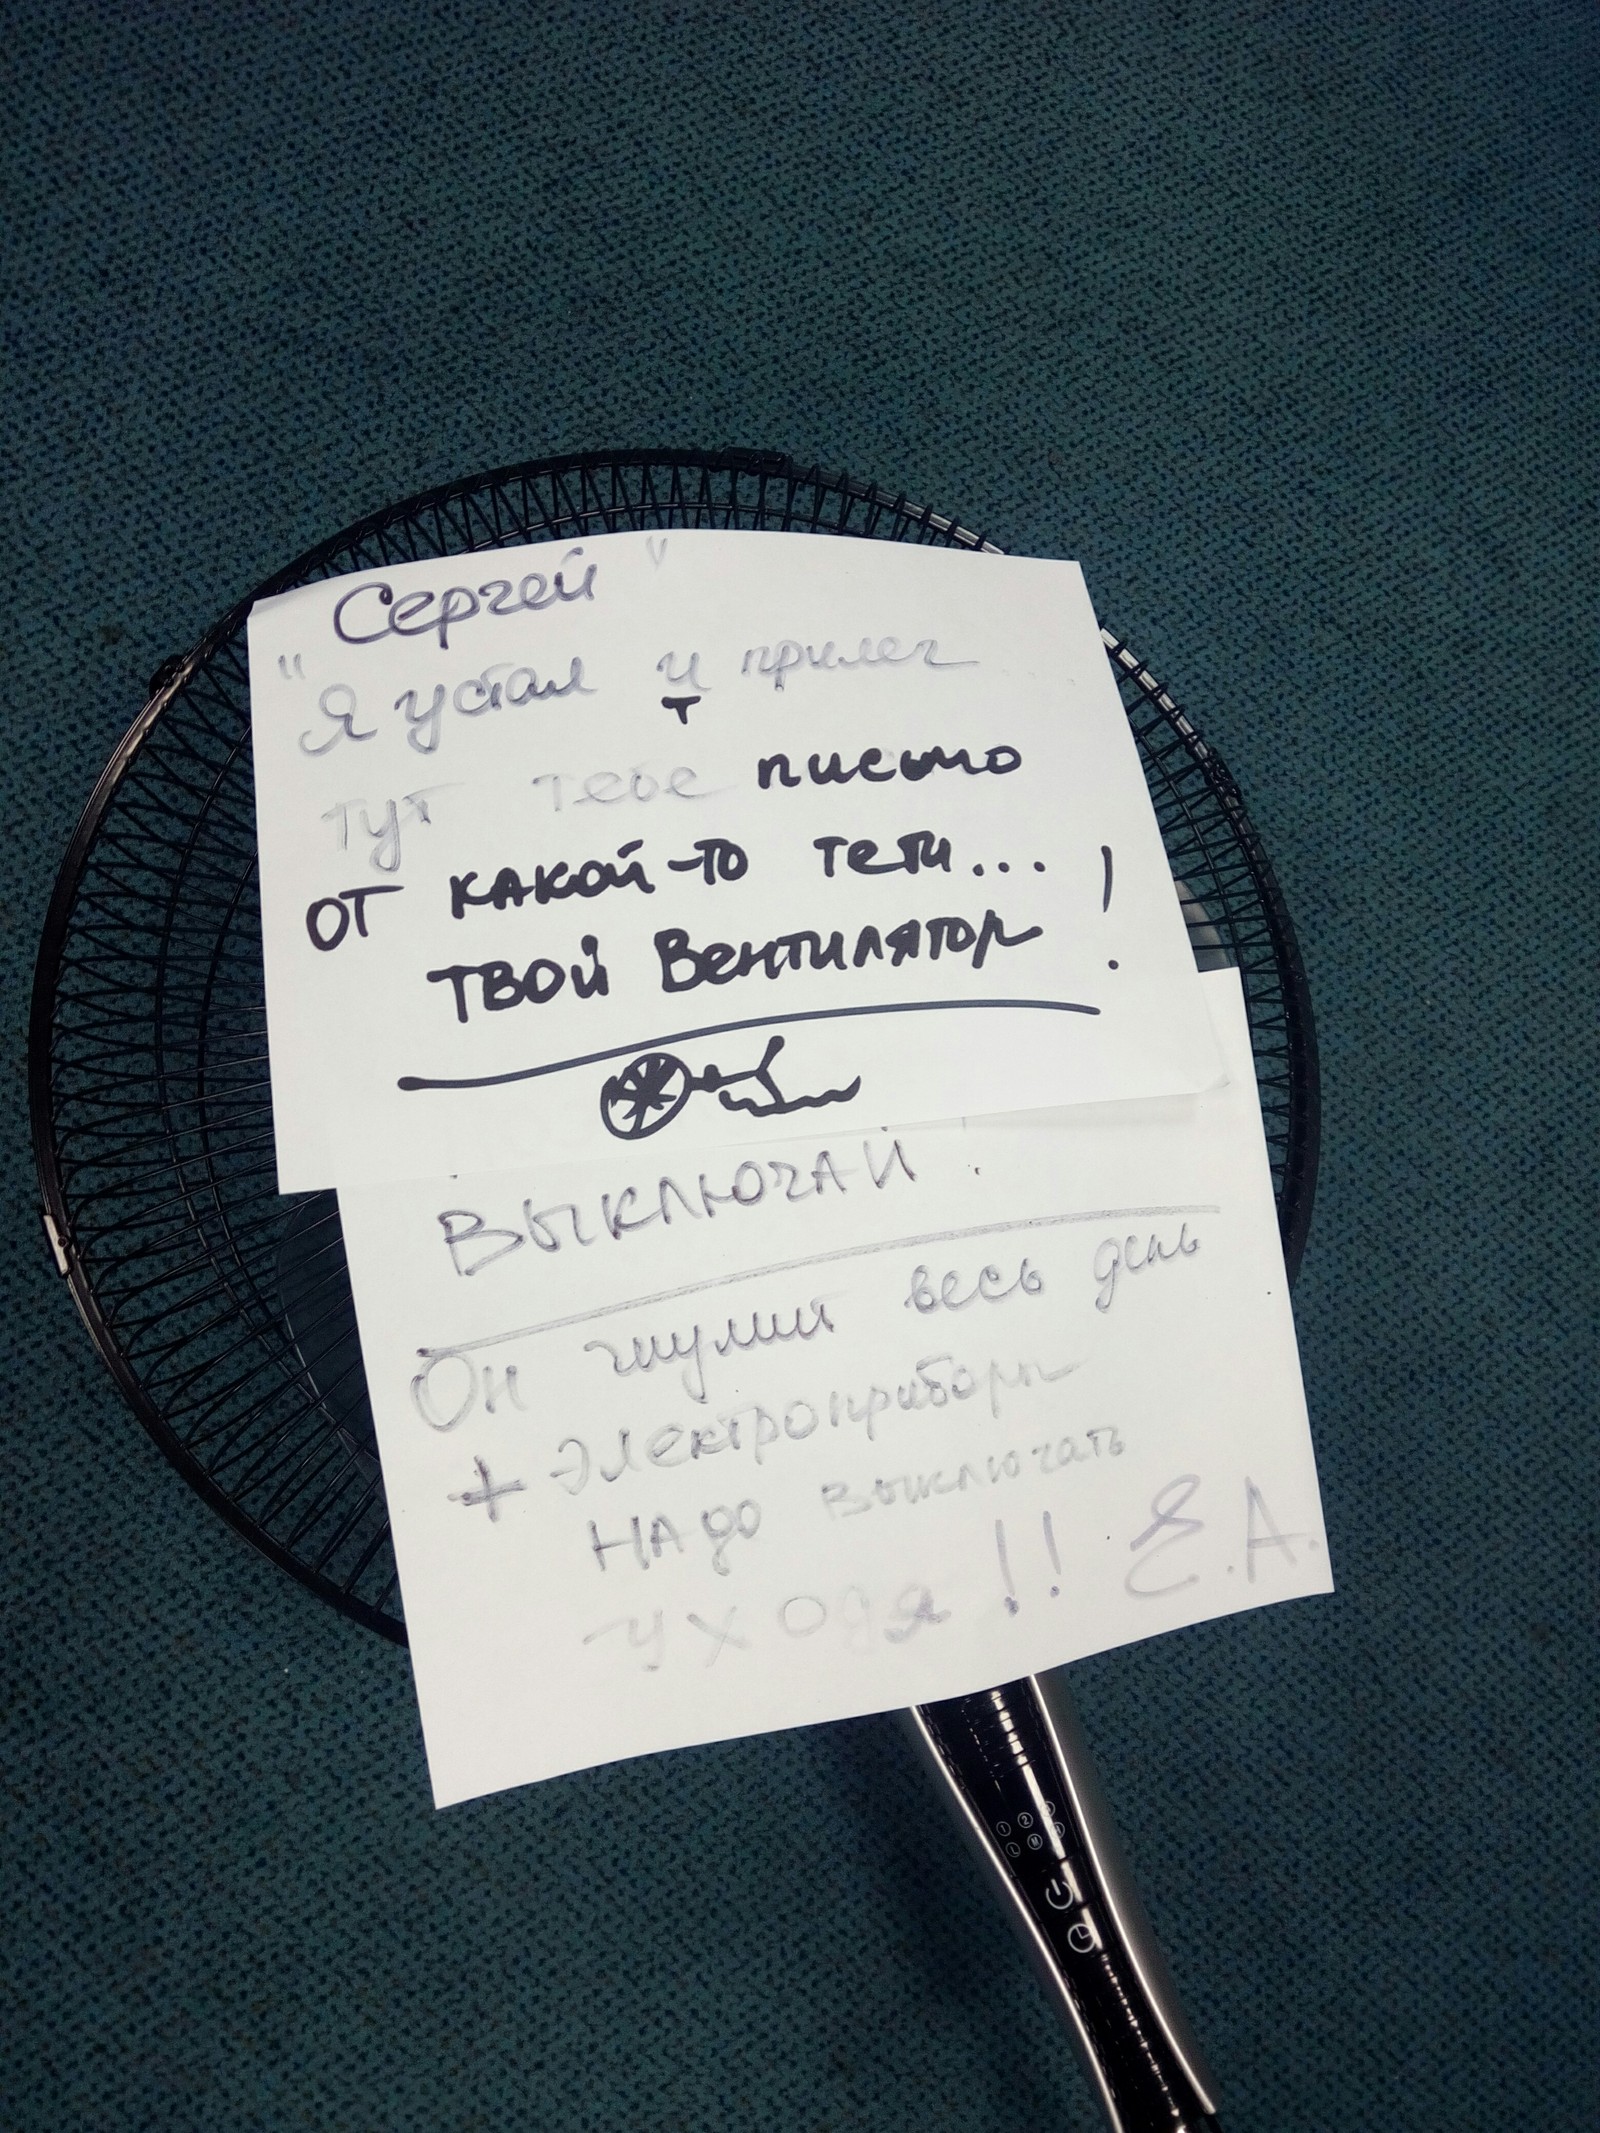 "Сергей"
"Я устал и прилег
т
тут тебе письмо
от какой-то тети...
твой Вентилятор!
Выключай!
Он шумит весь день
+ Электроприборы
надо выключать
уходя!! Е.А.
1 2
L M